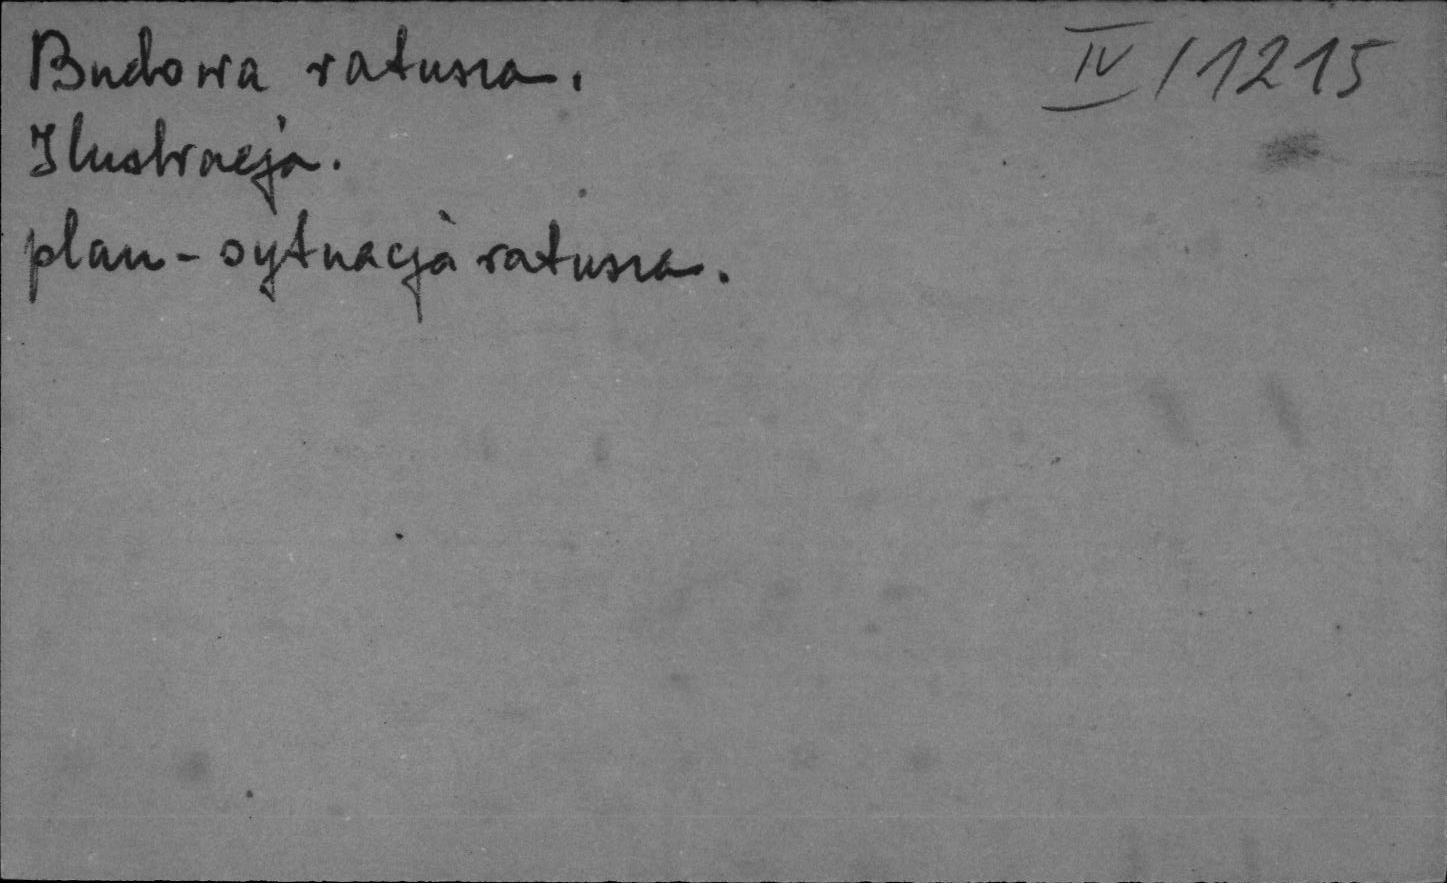 Budowa ratusza. IV/1215
Ilustracja.
plan - sytuacja ratusza.